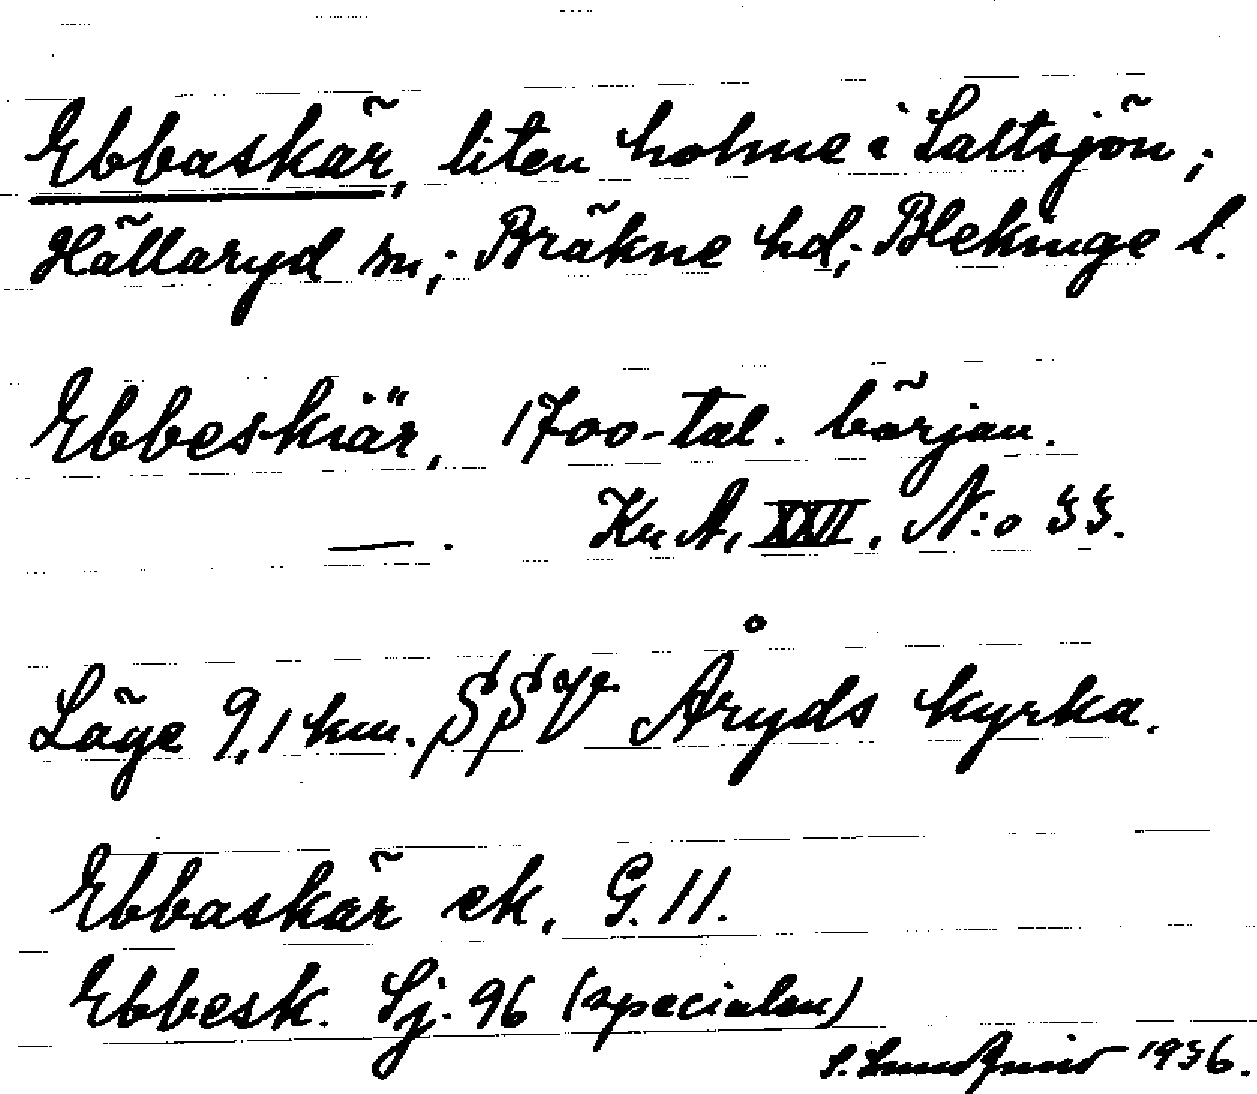 Ebbaskär, liten holme i Saltsjön;
Hällaryd sn; Bräkne hd; Blekinge l.
Ebbeskiär, 1700-tal. början.
—. Kr A, XXII, N:o 33.
Läge 9,1 km. SSV Åryds kyrka.
Ebbaskär ek. G. 11.
Ebbesk. Sj. 96 (specialen)
S. Lundquist 1936.